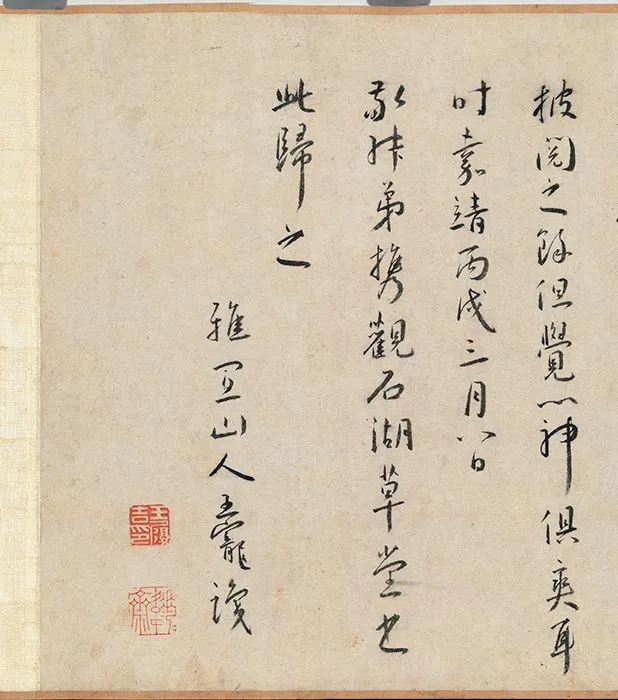 披閱之餘但覺心神俱爽耳
時嘉靖丙戌三月八日
弟携觀石湖草堂書
此歸之
雅宜山人王寵識